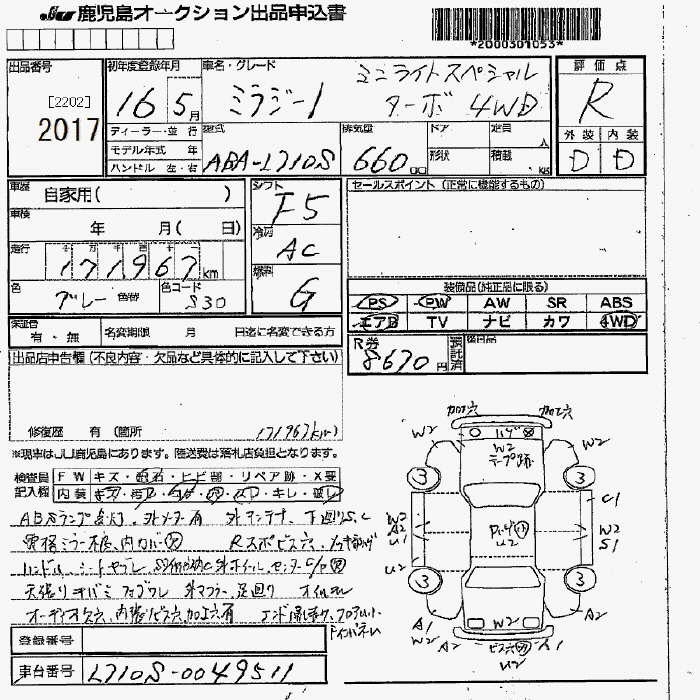 JU 鹿児島オークション出品申込書
*2000301053*
出品番号
[2202]
2017
初年度登録年月
16 5月
車名・グレード
ミラジーノ
ミニライトスペシャル
ターボ 4WD
評価点
R
外装 内装
D D
ディーラー・並行
モデル年式 年
ハンドル 左・右
型式
ABA-L710S
排気量
660cc
ドア
形状
定員 人
積載 kg
車歴
自家用( )
車検
年 月( 日)
走行
171967km
色
グレー 色替
色コード
S30
シフト
F5
冷房
AC
燃料
G
セールスポイント(正常に機能するもの)
装備品(純正品に限る)
PS PW AW SR ABS
エアB TV ナビ カワ 4WD
保証書
有・無
名変期限 月 日迄に名変できる方
R券
8670円
預託済
後日品
出品店申告欄(不良内容・欠品など具体的に記入して下さい)
修復歴 有(箇所
171967km)
※現車はJU鹿児島にあります。陸送費は落札店負担となります。
検査員記入欄
FW キズ・飛石・ヒビ・リペア跡・X要
内装 キズ・汚れ・コゲ・穴・スレ・キレ・破レ
ABSランプ点灯、外メーター有 外アンテナ、下廻りS,C
電格ミラー不良、内カバー欠 Rスポビス穴
ハンドル、シートヤブレ
天張りキバミ フロアワレ 外マフラー、足廻り オイルモレ
オーディオ欠穴、内張りビス穴、加工穴有
登録番号
車台番号
L710S-0049511
加工穴 加工穴
W2 ハゲ W2
W2
テープ跡
3 3
C1
W2
A2
U1
U2
W2
S1
U2
3 3
A1
W2
A2
W2
ビス穴 A1
U2